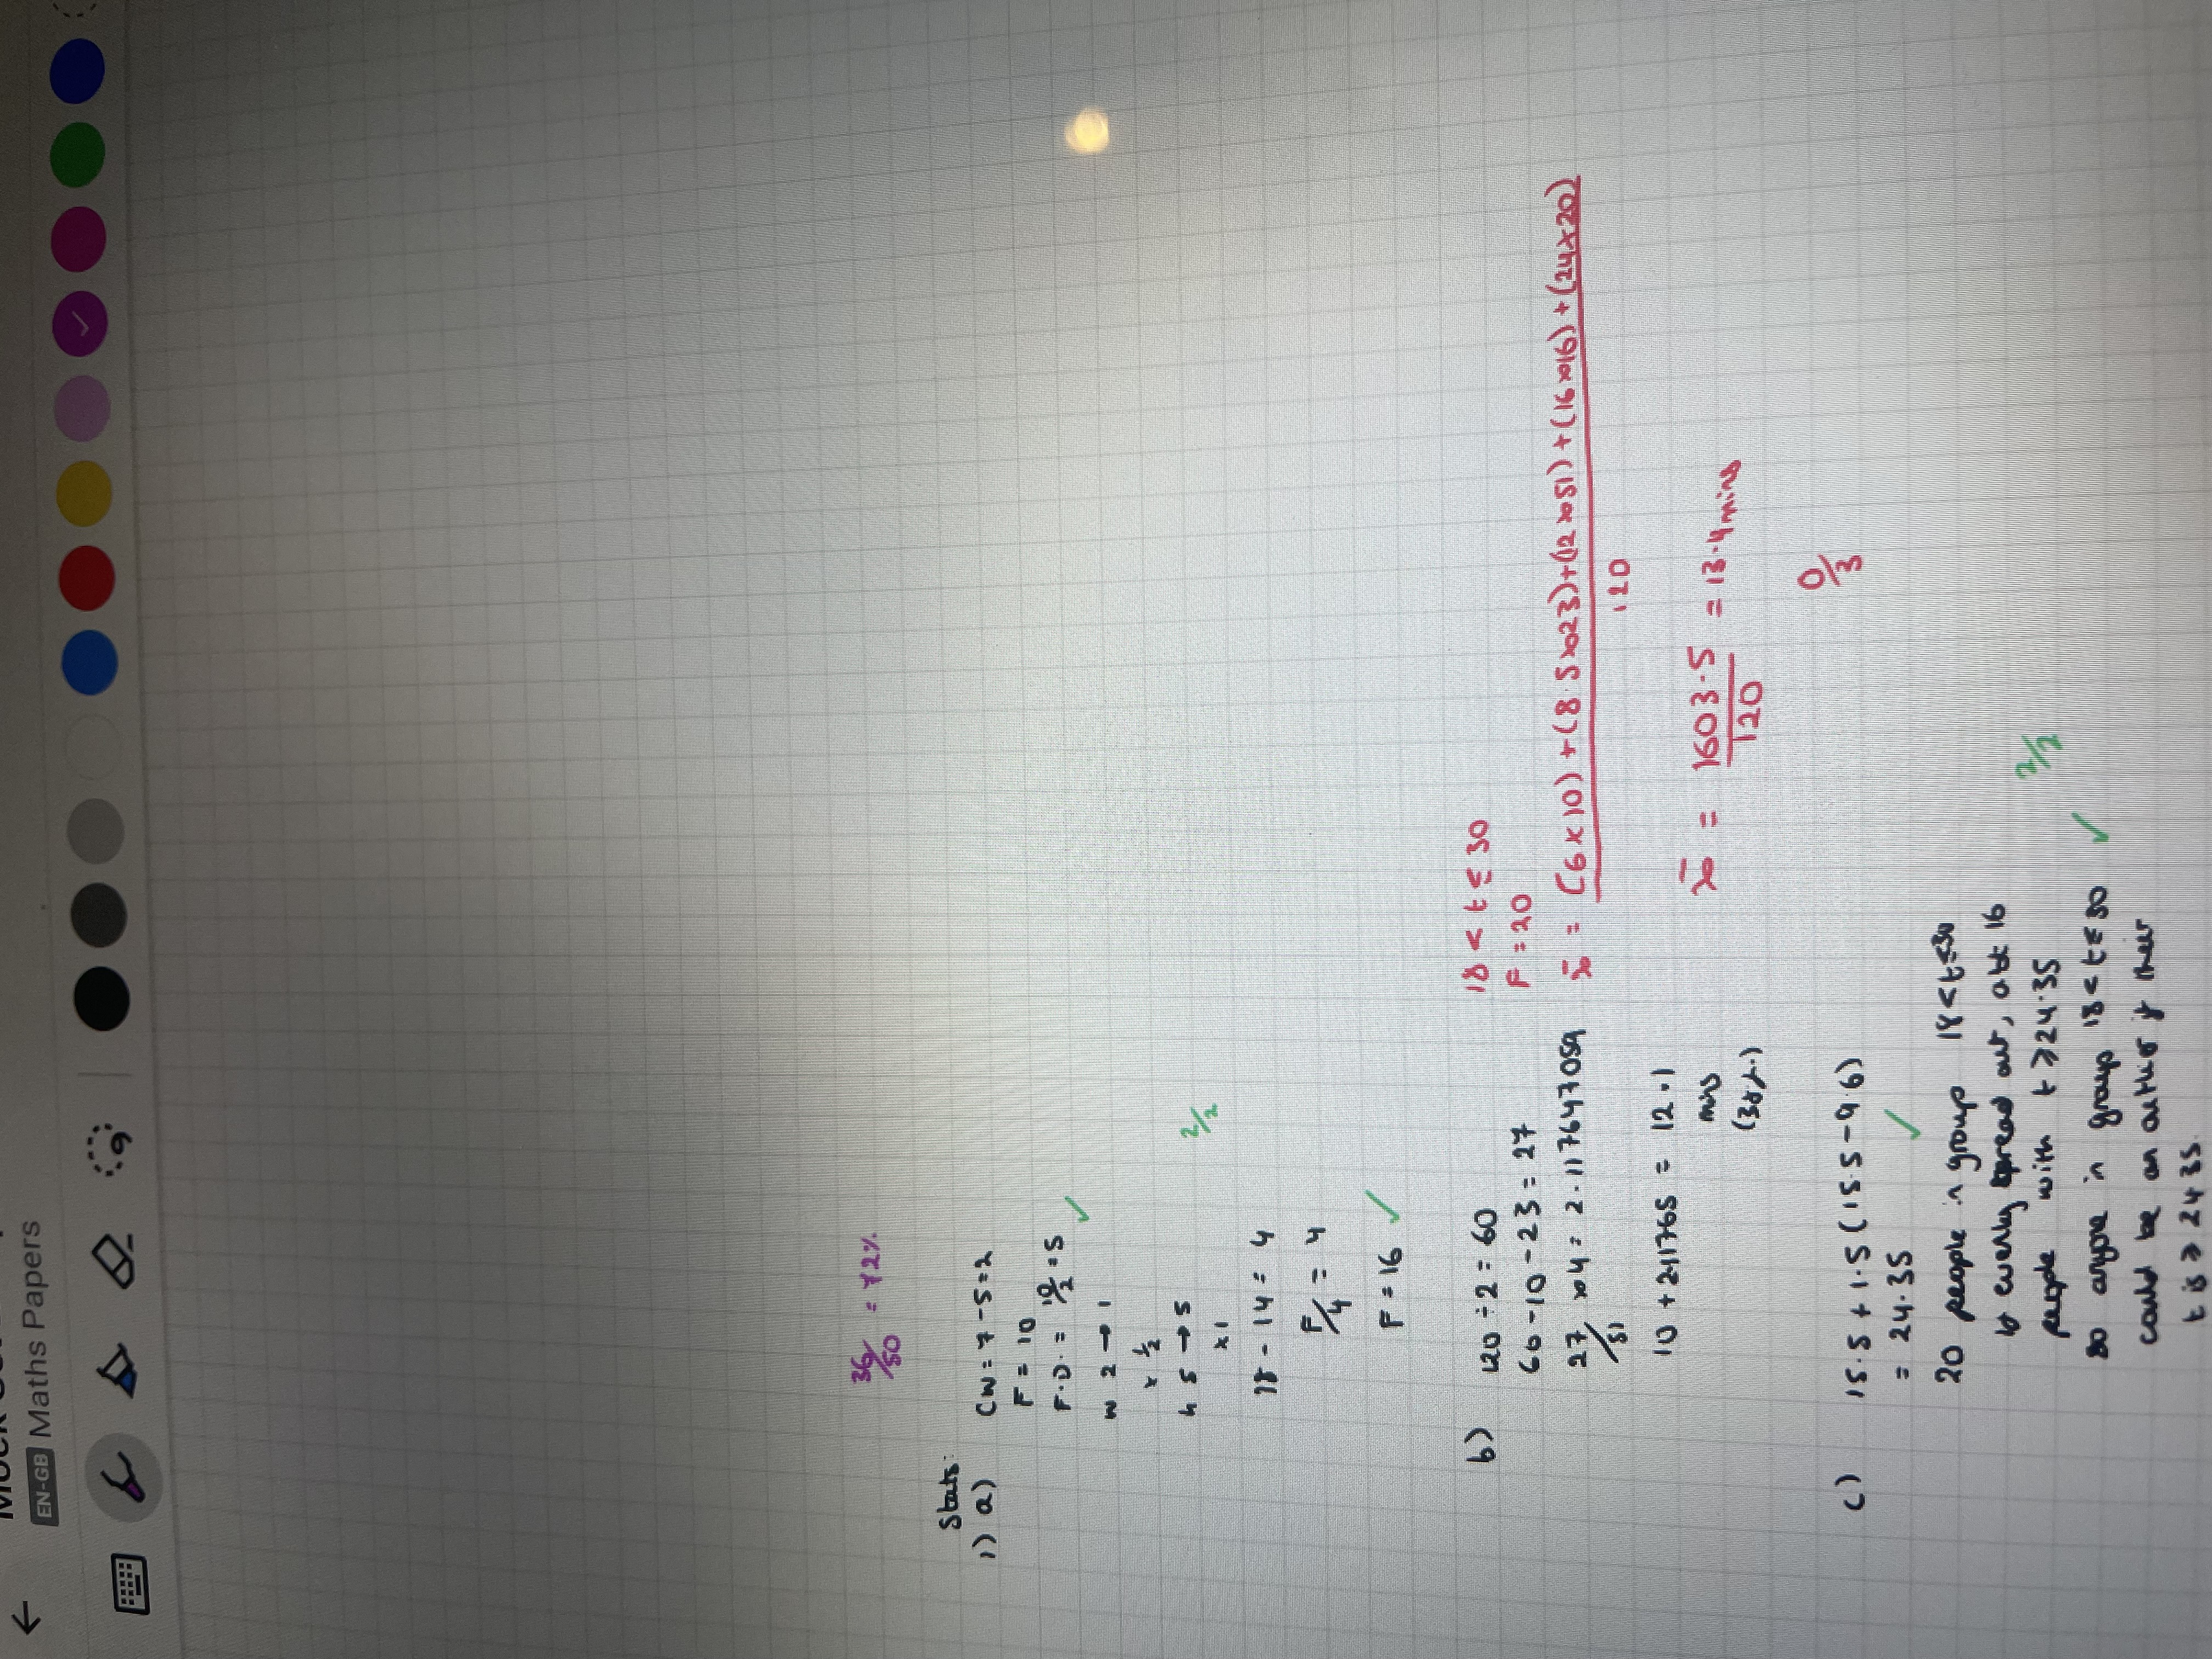 EN-GB Maths Papers
36/50 = 72%
Stats:
1) a) CW = 7 - 5 = 2
F = 10
F.D. = 10/2 = 5 ✓
w 2 → 1
x 1/2
h 5 → 5
x 1
2/2
18 - 14 = 4
F/4 = 4
F = 16 ✓
b) 120 ÷ 2 = 60
60 - 10 - 23 = 27
27/51 x 4 = 2.117647059
10 + 2.11765 = 12.1
mins
(3s.f.)
18 < t ≤ 30
F = 20
x̄ = (6 x 10) + (8.5 x 23) + (12 x 51) + (16 x 16) + (24 x 20)
120
x̄ = 1603.5/120 = 13.4 mins
0/3
c) 15.5 + 1.5 (15.5 - 9.6)
= 24.35 ✓
20 people in group 18 < t ≤ 30
evenly spread out, 16
people with t ≥ 24.35
so anyone in group 18 < t ≤ 30 ✓
could be an outlier if their
t is ≥ 24.35.
2/2